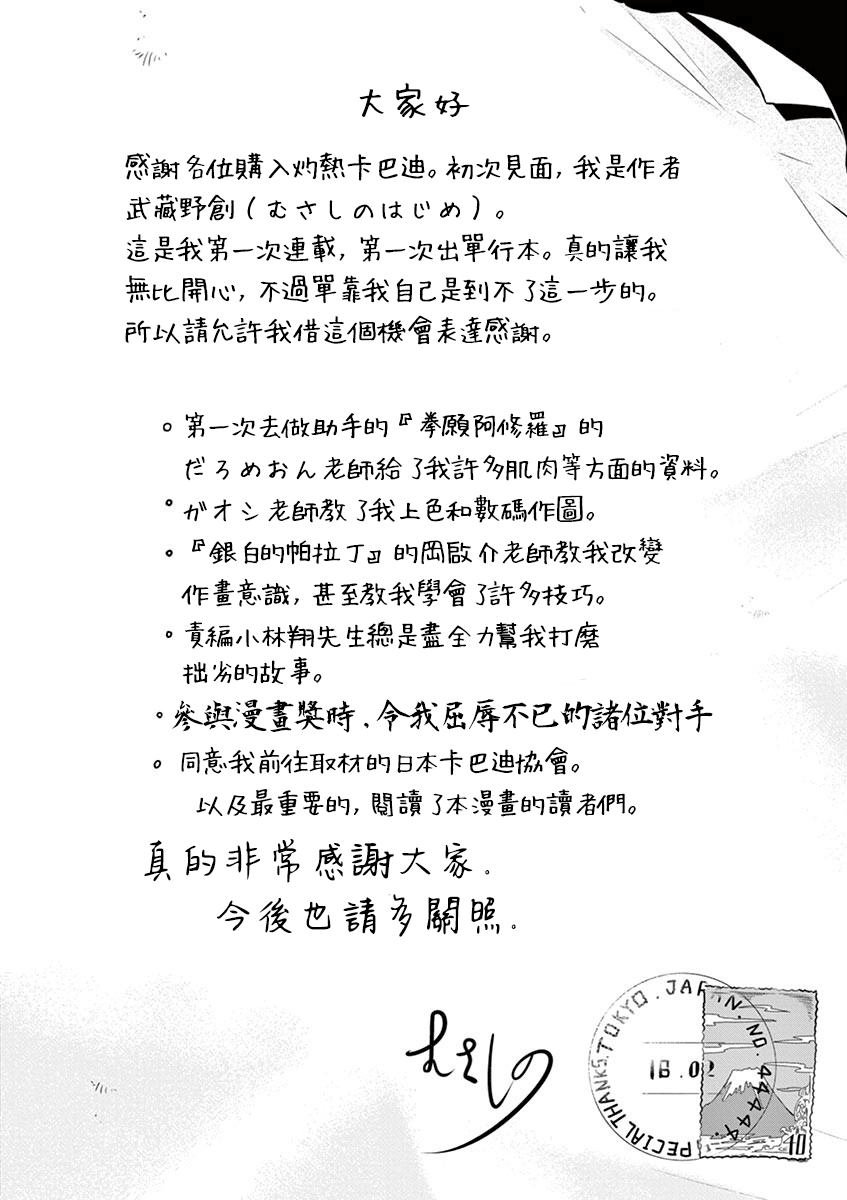 大家好
感謝各位購入灼熱卡巴迪。初次見面,我是作者
武藏野創(むさしのはじめ)。
這是我第一次連載,第一次出單行本。真的讓我
無比開心,不過單靠我自己是到不了這一步的。
所以請允許我借這個機會表達感謝。
。第一次去做助手的『拳願阿修羅』的
だろめおん老師給了我許多肌肉等方面的資料。
。ガオシ老師教了我上色和數碼作圖。
。『銀白的帕拉丁』的岡啟介老師教我改變
作畫意識,甚至教我學會了許多技巧。
。責編小林翔先生總是盡全力幫我打磨
拙劣的故事。
。參與漫畫獎時、令我屈辱不已的諸位對手
。同意我前往取材的日本卡巴迪協會。
以及最重要的,閱讀了本漫畫的讀者們。
真的非常感謝大家。
今後也請多關照。
むさしの
SPECIAL THANKS. TOKYO. JAPAN. NO. 44444.
16.02
10